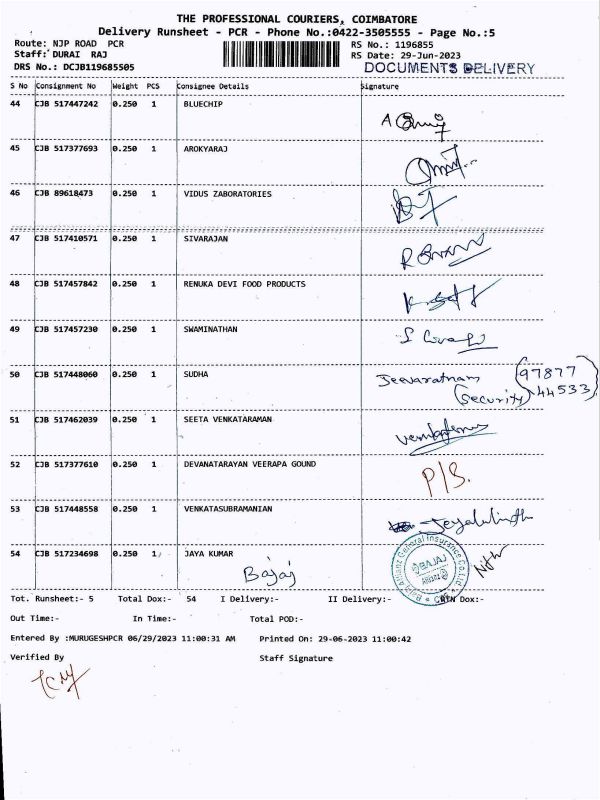 THE PROFESSIONAL COURIERS, COIMBATORE
Delivery Runsheet - PCR - Phone No.:0422-3505555 - Page No.:5
Route: NJP ROAD PCR
RS No.: 1196855
Staff: DURAI RAJ
RS Date: 29-Jun-2023
DRS No.: DCJB119685505
DOCUMENTS DELIVERY
S No Consignment No Weight PCS Consignee Details Signature
44 CJB 517447242 0.250 1 BLUECHIP
45 CJB 517377693 0.250 1 AROKYARAJ
46 CJB 89618473 0.250 1 VIDUS ZABORATORIES
47 CJB 517410571 0.250 1 SIVARAJAN
48 CJB 517457842 0.250 1 RENUKA DEVI FOOD PRODUCTS
49 CJB 517457230 0.250 1 SWAMINATHAN
50 CJB 517448060 0.250 1 SUDHA Jeevaratnam (97877
(Security) 44533)
51 CJB 517462039 0.250 1 SEETA VENKATARAMAN
52 CJB 517377610 0.250 1 DEVANATARAYAN VEERAPA GOUND P/S.
53 CJB 517448558 0.250 1 VENKATASUBRAMANIAN
54 CJB 517234698 0.250 1 JAYA KUMAR
Bajaj
Bajaj Allianz General Insurance Co.Ltd
BAJAJ
Allianz
Tot. Runsheet:- 5 Total Dox:- 54 I Delivery:- II Delivery:- Dox:-
Out Time:- In Time:- Total POD:-
Entered By :MURUGESHPCR 06/29/2023 11:00:31 AM Printed On: 29-06-2023 11:00:42
Verified By Staff Signature